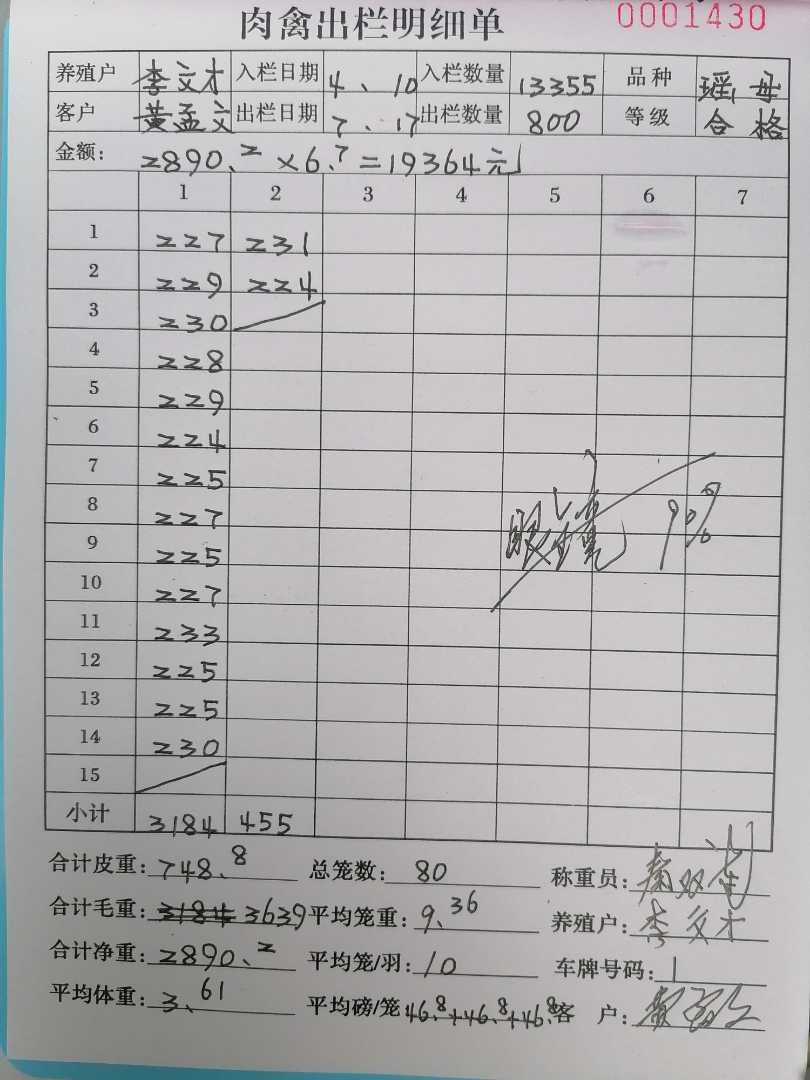 肉禽出栏明细单 0001430
养殖户 李文才 入栏日期 4、10 入栏数量 13355 品种 瑶母
客户 黄孟文 出栏日期 7、17 出栏数量 800 等级 合格
金额: 2890.2×6.7=19364元
1 2 3 4 5 6 7
1 227 231
2 229 224
3 230
4 228
5 229
6 224
7 225
8 227
9 225
10 227
11 233
12 225
13 225
14 230
15
9%
小计 3184 455
合计皮重: 748.8 总笼数: 80 称重员:
合计毛重: 3184 3639 平均笼重: 9.36 养殖户: 李文才
合计净重: 2890.2 平均笼/羽: 10 车牌号码: 1
平均体重: 3.61 平均磅/笼 46.8+46.8+46.8 客 户: